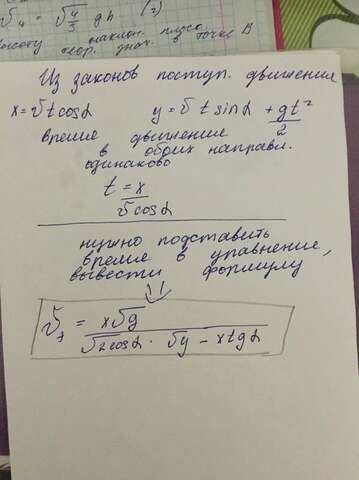 v₄ = √4/3 gh (2)
высоту наклон. плоск.
скор. знач. в точке В
Из законов поступ. движения
x = v t cosα y = v t sinα + gt²/2
время движение
в обоих направл.
одинаково
t = x / v cosα
нужно подставить
время в уравнение,
вывести формулу
v₁ = x√g / √2 cosα · √y − x tgα